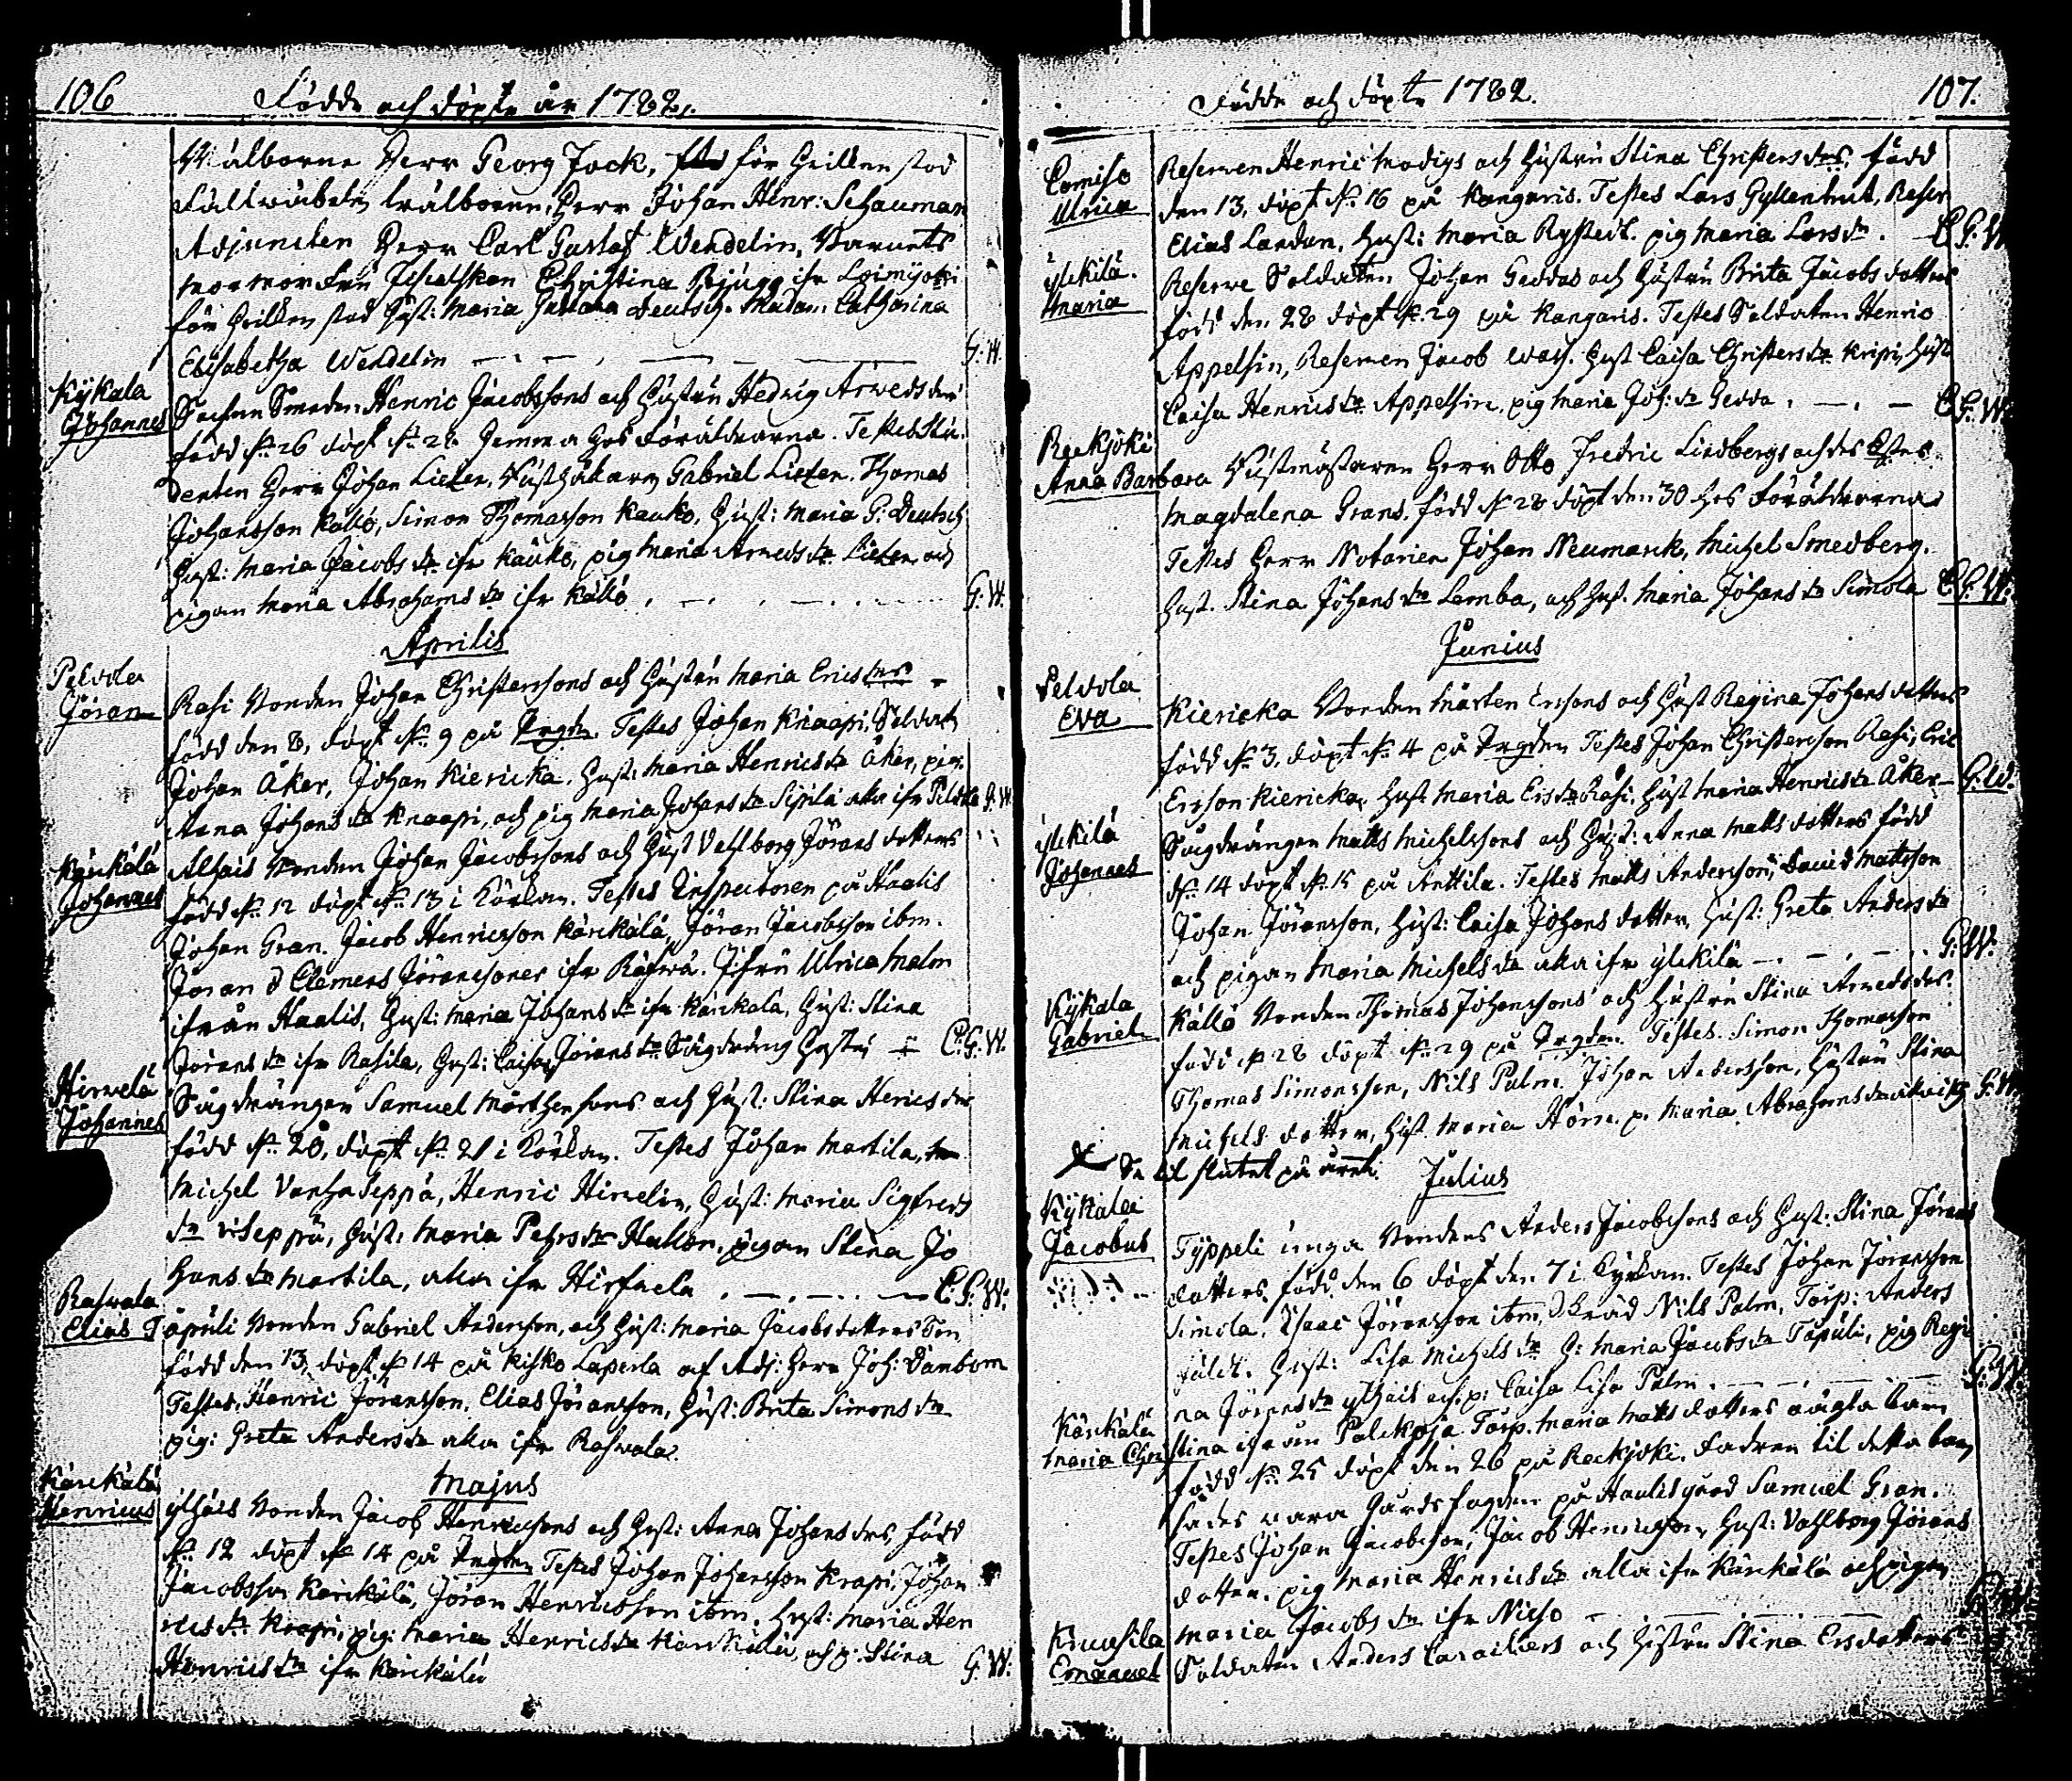 106
Födde och döpte år 1782.
Wälborne Herr Georg Jack, för hvilken stod
Fältwäbeln wälborne Herr Johan Henr: Schauman
Adjuncten Herr Carl Gustaf Wendelin, Barnets
mormor Fru Christina
för hvilken stod Hust: Maria Deutsch. Madam Catharina
Elisabetha Wendelin
G. W.
Kÿkala
Johannes
Smeden Henric Jacobssons och Hustru Hedvig Arvedsdrs
född d. 26 döpt d. 28 hemma hos Föräldrarna. Testes Stu-
denten Herr Johan Lieten, Gabriel Lieten. Thomas
Johansson Källö, Simon Thomasson Kauko, Hust: Maria G: Deutsch
Hust: Maria Jacobs dr ifr Kauko, pig Maria Arvedsdr Lieten och
pigan Maria Abrahams dr ifr Källö
G. W.
Aprilis
Peldola
Jöran
Rasi Bonden Johan Christerssons och Hustru Maria Ericsdrs
född den 8, döpt d. 9 på Prgdn. Testes Johan Knaapi, Soldat
Johan Åker, Johan Kiericka. Hust: Maria Henricsdr Åker, pig.
Anna Johans dr Knaapi, och pig Maria Johans dr Sipilä alla ifr Peldola G. W.
Kärikälä
Johannes
Alhais Bonden Johan Jacobssons och Hust Valborg Jörans dotters
född d. 12 döpt d. 13 i Kÿrkan. Testes Inspectoren på Haalis
Johan Gran. Jacob Henricsson Kärikälä, Jöran Jacobsson ibm.
Jöran & Clemens Jöranssoner ifr Räfwä. Jfru Ulrica Malm
ifrån Haalis, Hust: Maria Johans dr ifr Kärikälä, Hust: Stina
Jörans dr ifr Rasila, Hust: Caisa Jörans dr Sågdräng Hustru
C. G. W.
Hirvelä
Johannes
Sågdrängen Samuel Mårthenssons och Hust: Stina Henricsdrs
född d. 20, döpt d. 21 i Kÿrkan. Testes Johan Martila,
Michel Vanhaseppä, Henric Hirvelin, Hust: Maria Sigfreds
dr v:seppä, Hust: Maria Pehrsdr Hallon, pigan Stina Jo
hans dr Martila, alla ifr Hirfvela
C. G. W.
Rahvala
Elias
Tapuli Bonden Gabriel Andersson, och Hust: Maria Jacobsdotters Son
född den 13, döpt d. 14 på Kisko Laperla af Adj: Herr Joh: Dambom
Testes, Henric Jöransson, Elias Jöransson, Hust: Brita Simons dr
pig: Greta Andersdr alla ifr Rahvala
Majus
Kärikälä
Henricus
ÿlhäis Bonden Jacob Henricssons och Hust: Anna Johansdrs, född
d. 12 döpt d. 14 på Prgdn Testes Johan Johansson Krapi, Johan
Jacobsson Kärikälä, Jöran Henricsson ibm. Hust: Maria Hen
ricsdr Krapi, pig: Maria Henricsdr Kärikälä, och p. Stina
Henricsdr ifr Kärikälä
G. W.
107.
Födde och döpte 1782.
Comiso
Ulrica
Reserven Henric Modigs och Hustru Stina Christersdrs, född
den 13, döpt d. 16 på Kangaris. Testes Lars Gyllentrut, Reserv
Elias Landan, Hust: Maria Rystedt. pig Maria Larsdr.
C. G. W.
ÿlikilä.
Maria
Reserve Soldaten Johan Geddas och Hustru Brita Jacobs dotters
född den 28 döpt d. 29 på Kangaris. Testes Soldaten Henric
Appelsin, Reserven Jacob Hust Caisa Christersdr Kripi, Hust
Caisa Henricsdr Appelsin, pig Maria Joh: dr Gedda.
C. G. W.
Reckjoki
Anna Barbara
Herr Otto Fredric Lindbergs och dess
Magdalena Grans. född d. 28 döpt den 30 hos Föräldrarna
Testes Herr Notarien Johan Neumanck, Michel Smedberg.
Hust. Stina Johans dr Lamba, och Hust. Maria Johans dr Simola
C. G. W.
Junius
Peldola
Eva
Kiericka Bonden Mårten Erssons och Hust Regina Johans dotters
född d. 3, döpt d. 4 på Prgdn Testes Johan Christersson Rasi, Eric
Ersson Kiericka, Hust Maria Ersdr Rasi, Hust Maria Henricsdr Åker
G. W.
ÿlikilä
Johannes
Sågdrängen Matts Michelssons och Hust: Anna Matts dotters född
d. 14 döpt d. 15 på Anttila. Testes Matts Andersson, David Mattsson
Johan Jöransson, Hust: Caisa Johans dotter, Hust: Greta Andersdr
och pigan Maria Michelsdr alla ifr ÿlikilä
G. W.
Kÿkala
Gabriel
Källö Bonden Thomas Johanssons och Hustru Stina Arvedsdrs.
född d. 28 döpt d. 29 på Prgdn. Testes. Simon Thomasson
Thomas Simonsson, Nils Palm. Johan Andersson, Hustru Stina
Michels dotter, Hust. Maria p. Maria Abrahamsdr
G. W.
Se til slutet på året.
Julius
Kÿkala
Jacobus
Tÿppeli unga Bondens Anders Jacobssons och Hust: Stina Jörans
dotters, född den 6 döpt den 7 i Kÿrkan. Testes Johan Jöransson
Simola, Isaac Jöransson ibm, Nils Palm, Torp: Anders
Hust: Lisa Michels dr H: Maria Jacobsdr Tapuli, pig Regi
na Jörans dr ÿlhäis och p: Caisa Lisa Palm.
G. W.
Kärikälä
Maria Christina
ifrån Palikoja Torp. Maria Matts dotters oägta barn
född d. 25 döpt den 26 på Reckjoki. Fadren til detta barn
sades vara Gårds fogden på Haalis gård Samuel Gran.
Testes Johan Jacobsson, Jacob Henricsson, Hust: Valborg Jörans
dotter. pig Maria Henricsdr alla ifr Kärikälä och pigan
Maria Jacobs dr ifr
Knuusila
Emanuel
Soldaten Anders och Hustru Stina Ersdotters